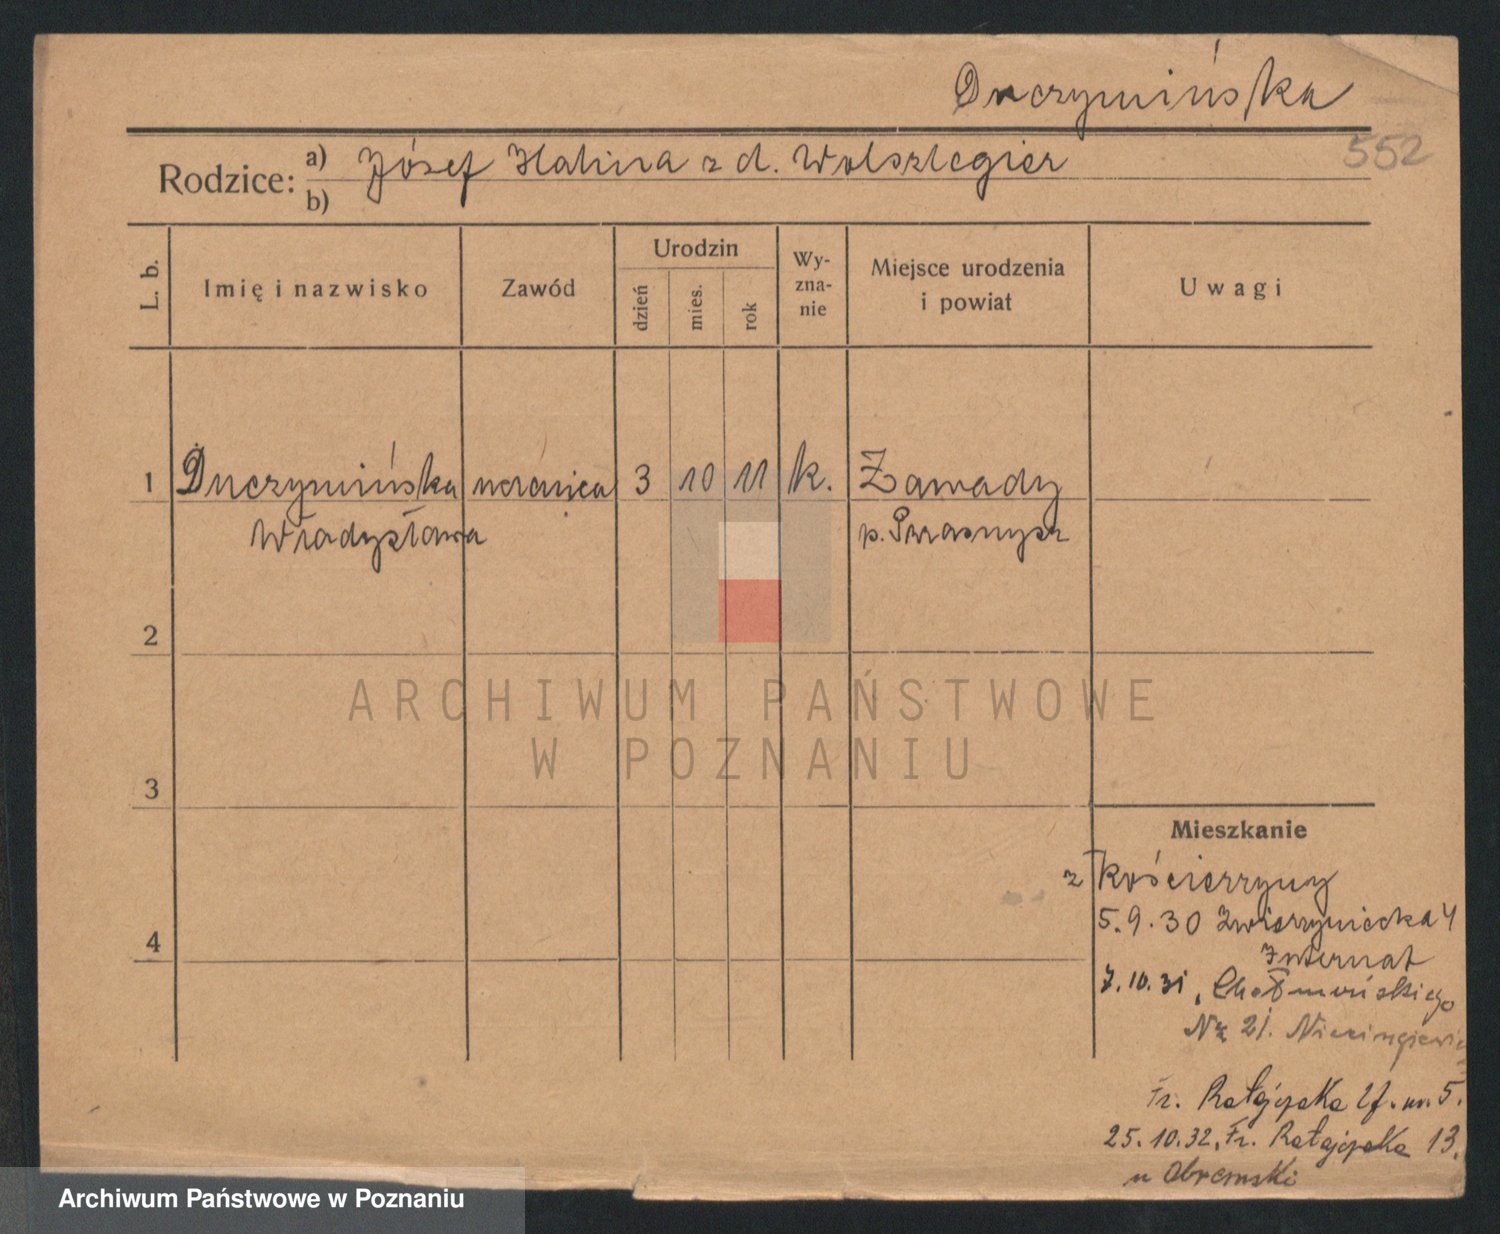 Duczymińska
552
Rodzice: a) Józef Halina z d. Wolszlegier
b)
L. b.
Imię i nazwisko
Zawód
Urodzin
dzień
mies.
rok
Wy-
zna-
nie
Miejsce urodzenia
i powiat
Uwagi
1 Duczymińska uczenica 3 10 11 k. Zawady
Władysława p. Przasnysz
2
3
4
ARCHIWUM PAŃSTWOWE
W POZNANIU
Mieszkanie
z Kościerzyny
5.9.30 Zwierzyniecka 4
Internat
7.10.31, Chełmońskiego
Nr 21.
Fr. Ratajczaka 27. m. 5.
25.10.32. Fr. Ratajczaka 13.
u Abramski
Archiwum Państwowe w Poznaniu